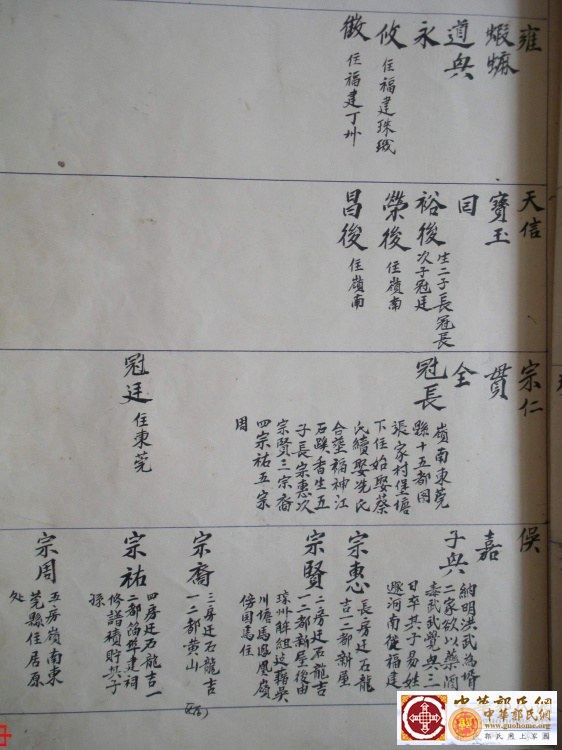 雍
蝦蟆
道興
永
攸 住福建珠璣
徽 住福建丁州
天信
寶玉
回
裕後 生二子長冠長
次子冠廷
榮後 住嶺南
昌後 住嶺南
宗仁
貫
全
冠長 嶺南東莞
縣十五都圖
張家村堡塘
下住始娶蔡
氏續娶冼氏
合塋福神江
石蹊香生五
子長宗惠次
宗賢三宗裔
四宗祐五宗
周
冠廷 住東莞
俁
嘉
子興 納明洪武為壻
二家欲以藥酒
毒武武覺與三
日卒其子易姓
遯河南復福建
宗惠 長房迁石龍
吉一二都新屋
宗賢 二房迁石龍吉
一二都新屋後由
川塘馬鳳凰嶺
傍園馬住
宗裔 三房迁石龍吉
一二都黃山
宗祐 四房迁石龍吉一
二都 建祠
修譜積貯其子
孫
宗周 五房嶺南東
莞縣住居原
处
中華郭氏網
www.guohome.org
郭氏網上家園